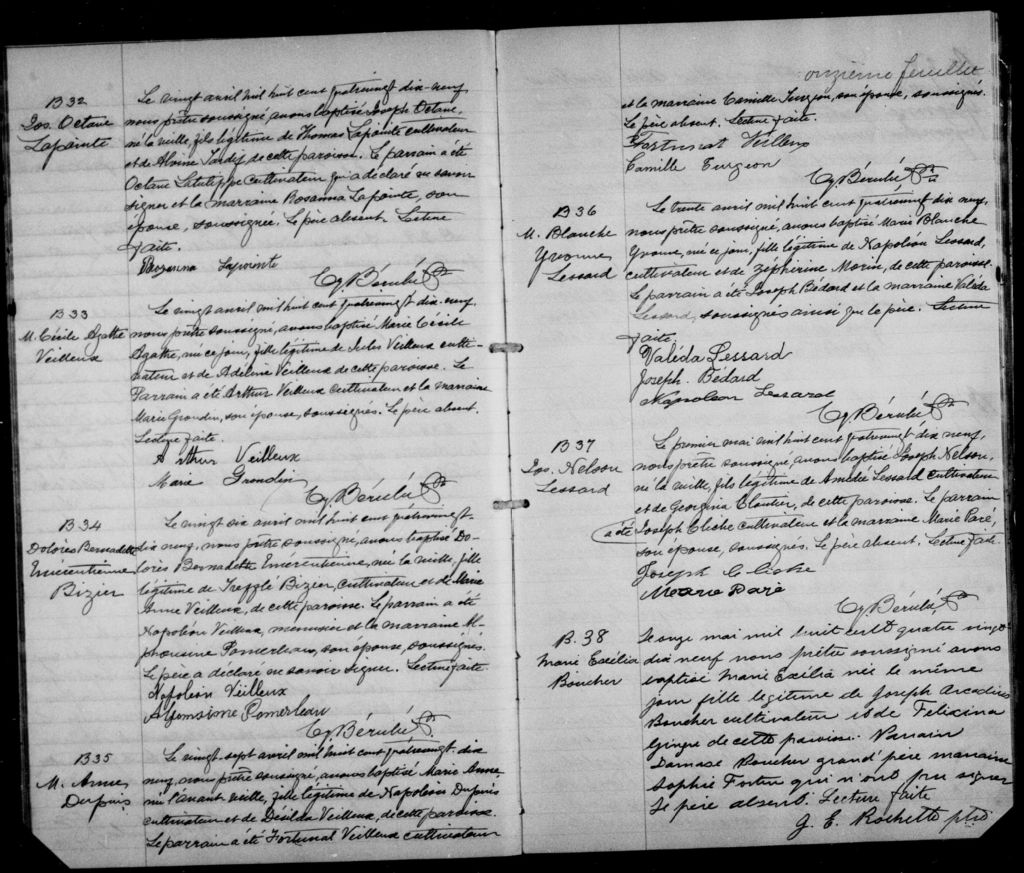 B 32
Jos. Octave
Lapointe
Le vingt avril mil huit cent quatrevingt dix-neuf
nous prêtre soussigné avons baptisé Joseph Octave,
né la veille, fils légitime de Thomas Lapointe cultivateur
et de Alvine Tardif de cette paroisse. Le parrain a été
Octave cultivateur qui a déclaré ne savoir
signer et la marraine Rosanna Lapointe, son
épouse, soussignée. Le père absent. Lecture
faite.
Rozanna Lapointe
Bérubé Ptre
B 33
M. Cécile Agathe
Veilleux
Le vingt avril mil huit cent quatrevingt dix-neuf,
nous prêtre soussigné, avons baptisé Marie Cécile
Agathe, née ce jour, fille légitime de Jules Veilleux culti-
vateur et de Adeline Veilleux de cette paroisse. Le
Parrain a été Arthur Veilleux cultivateur et la marraine
Marie Grondin, son épouse, soussignés. Le père absent.
Lecture faite.
Arthur Veilleux
Marie Grondin
Bérubé Ptre
B 34
Dolorès Bernadette
Emérentienne
Bizier
Le vingt six avril mil huit cent quatrevingt-
dix neuf, nous prêtre soussigné, avons baptisé Do-
lorès Bernadette Emérentienne, née la veille, fille
légitime de Trefflé Bizier, cultivateur et de Marie
Anne Veilleux, de cette paroisse. Le parrain a été
Napoléon Veilleux, menuisier et la marraine Al-
phonsine Pomerleau, son épouse, soussignés.
Le père a déclaré ne savoir signer. Lecture faite
Napoléon Veilleux
Alfonsine Pomerleau
Bérubé Ptre
B 35
M. Anne
Dupuis
Le vingt sept avril mil huit cent quatrevingt dix
neuf, nous prêtre soussigné, avons baptisé Marie Anne,
née l'avant veille, fille légitime de Napoléon Dupuis
cultivateur et de Désilda Veilleux, de cette paroisse.
Le parrain a été Fortunat Veilleux cultivateur
onzième feuillet
et la marraine Camille Turgeon, son épouse, soussignés.
Le père absent. Lecture faite.
Fortunat Veilleux
Camille Turgeon
Bérubé Ptre
B 36
M. Blanche
Yvonne
Lessard
Le trente avril mil huit cent quatrevingt dix neuf,
nous prêtre soussigné, avons baptisé Marie Blanche
Yvonne, née ce jour, fille légitime de Napoléon Lessard,
cultivateur et de Zéphirine Morin, de cette paroisse.
Le parrain a été Joseph Bédard et la marraine Valéda
Lessard, soussignés ainsi que le père. Lecture
faite.
Valéda Lessard
Joseph. Bédard
Napoleon Lessard
Bérubé Ptre
B 37
Jos. Nelson
Lessard
Le premier mai mil huit cent quatrevingt-dix neuf,
nous prêtre soussigné, avons baptisé Joseph Nelson,
né la veille, fils légitime de Amédée Lessard cultivateur
et de Georgina Cloutier, de cette paroisse. Le parrain
a été Joseph Cliche cultivateur et la marraine Marie Paré,
son épouse, soussignés. Le père absent. Lecture faite.
Joseph Cliche
Marie Paré
Bérubé, Ptre
B. 38
Marie Exélia
Boucher
Le onze mai mil huit cent quatre vingt
dix neuf nous prêtre soussigné avons
baptisé Marie Exilia née le même
jour fille legitime de Joseph Arcadius
Boucher cultivateur et de Felixina
Gingre de cette paroisse. Parrain
Damase Boucher grand père marraine
Sophie Fortin qui n'ont pu signer
Le père absent. Lecture faite
G. E. Rochette ptre